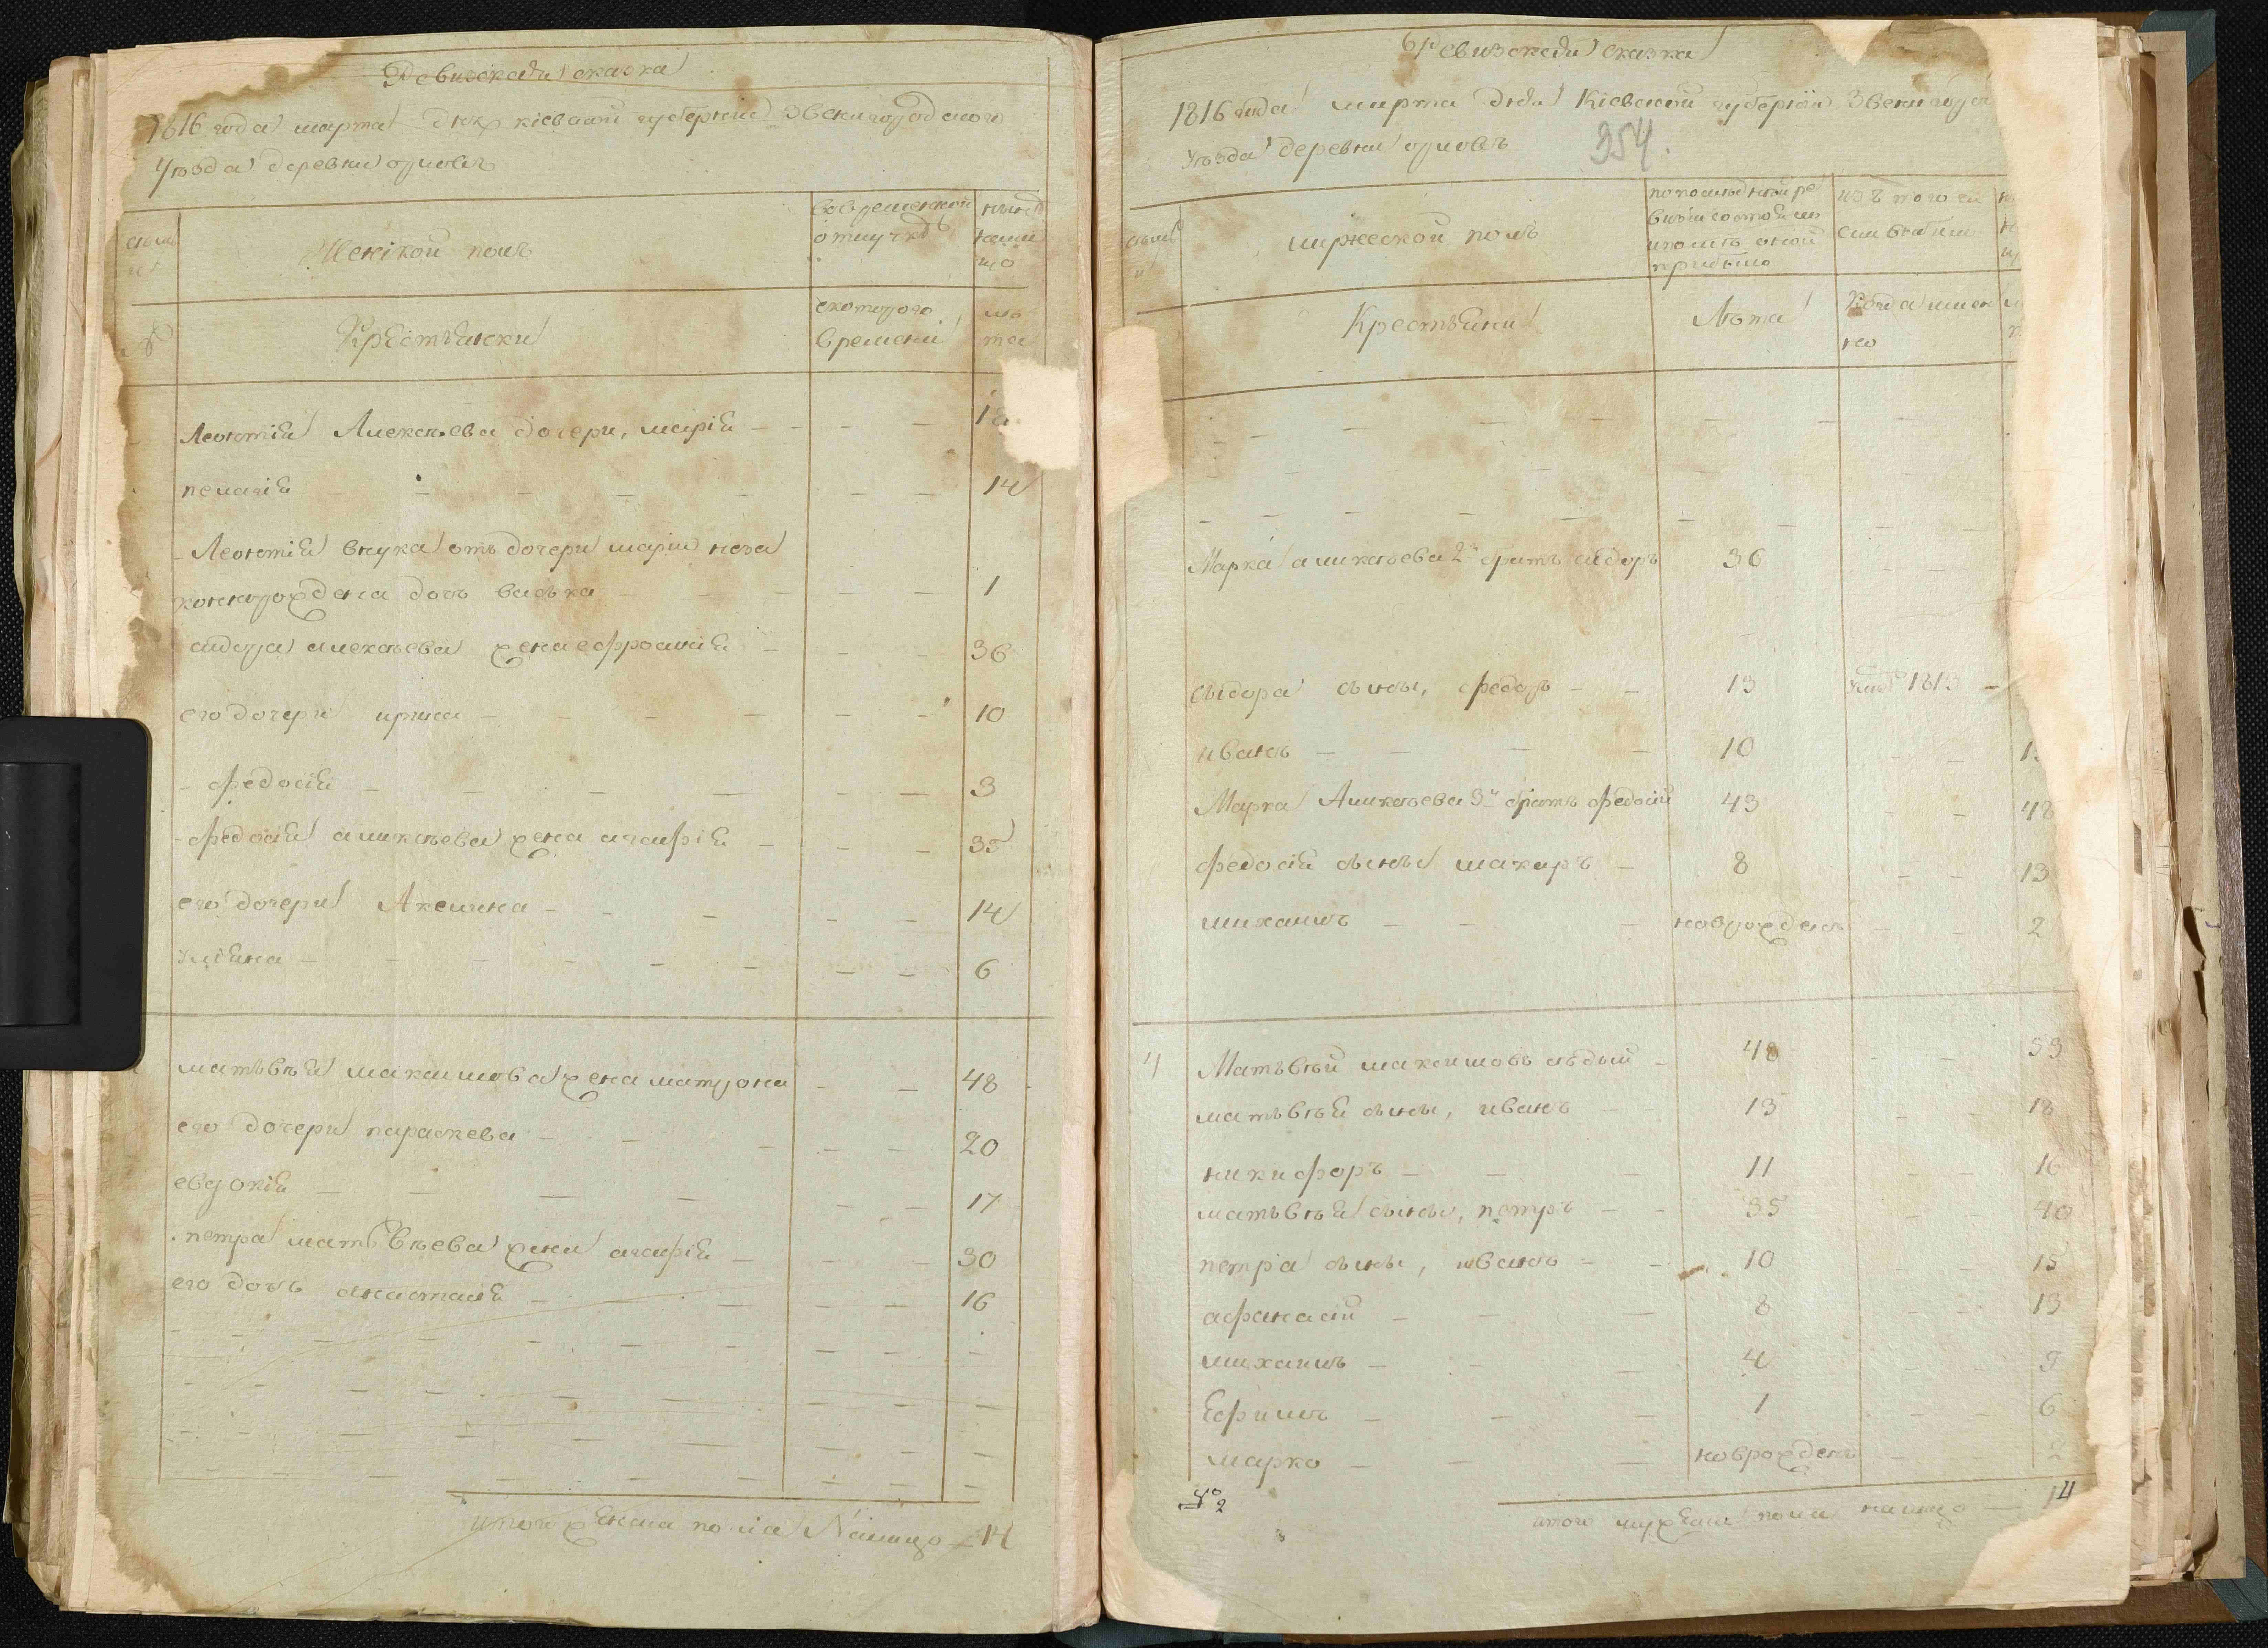 Ревизская сказка
1816 года марта дня киевской губернии Звенигородского
уѣзда деревни
Женской полъ
во временной отлучкѣ
нынѣ налицо
Крестьянки
с которого времени
лѣта
Леонтія Алексѣева дочери, марія
пелагія 14
Леонтія внука отъ дочери маріи неза
коннорождена дочь васька 1
сидора алексѣева жена ефросинія 36
его дочери ирина 10
федосія 3
федосія алексѣева жена агафія 35
его дочери Аксинина 14
уляна 6
матьвѣя максимова жена матрона 48
его дочери параскева 20
евдокія 17
петра матьвѣева жена агафія 30
его дочь анастасія 16
итого женска пола Налицо 14
6 Ревизская сказка
1816 года марта дня Кіевской губернии Звенигород
уѣзда деревни
354.
мужеской полъ
по последней ре
визіи состояло
и после оной
прибыло
изъ того числа
выбыло
Крестьяни
Лѣта
Когда имен
но
Марка алексѣева 2й братъ сидоръ 36
сидора сыны, федоръ 13 умре 1813
иванъ 10
Марка Алексѣева 3й братъ федосій 43 48
федосія сыны макаръ 8 13
михаилъ новрожденъ 2
4 Матьвѣй максимовъ сѣдый 48 53
матьвѣя сыны, иванъ 13 18
никифоръ 11 16
матьвѣя сыны, петръ 35 40
петра сыны, иванъ 10 15
афанасій 8 13
михаилъ 4 9
Ефимъ 1 6
марко новрожденъ 2
№ 2
итого мужеска пола налицо 14